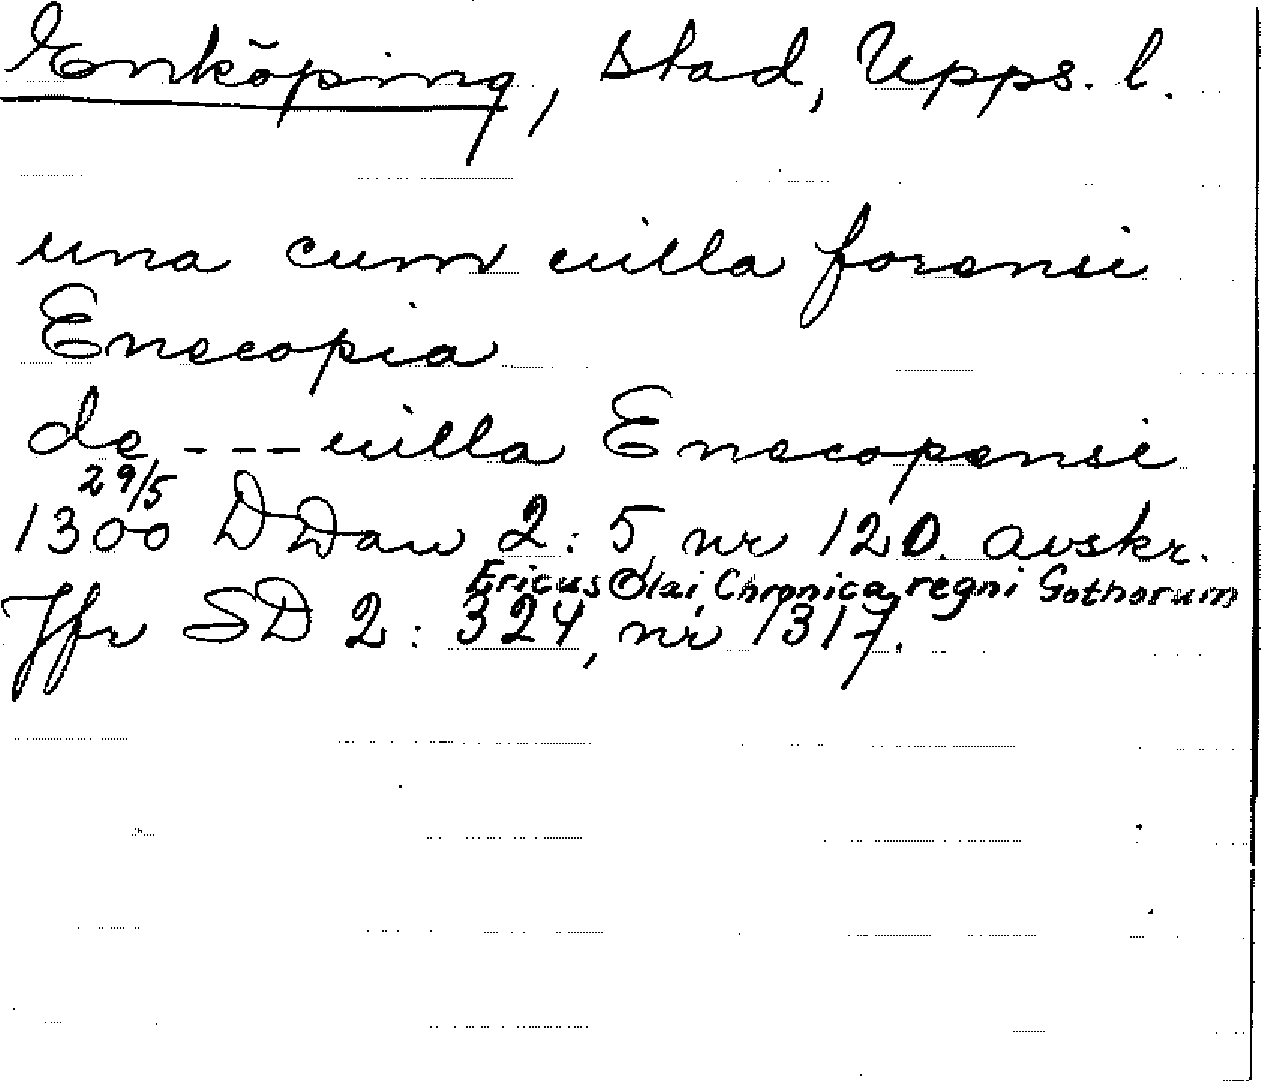 Enköping, stad, Upps. l.
una cum uilla forensi
Enecopia
de - - - uilla Enecopensi
29/5
1300 DDan 2: 5 nr 120. avskr.
Ericus Olai, Chronica regni Gothorum
Jfr SD 2: 324, nr 1317.